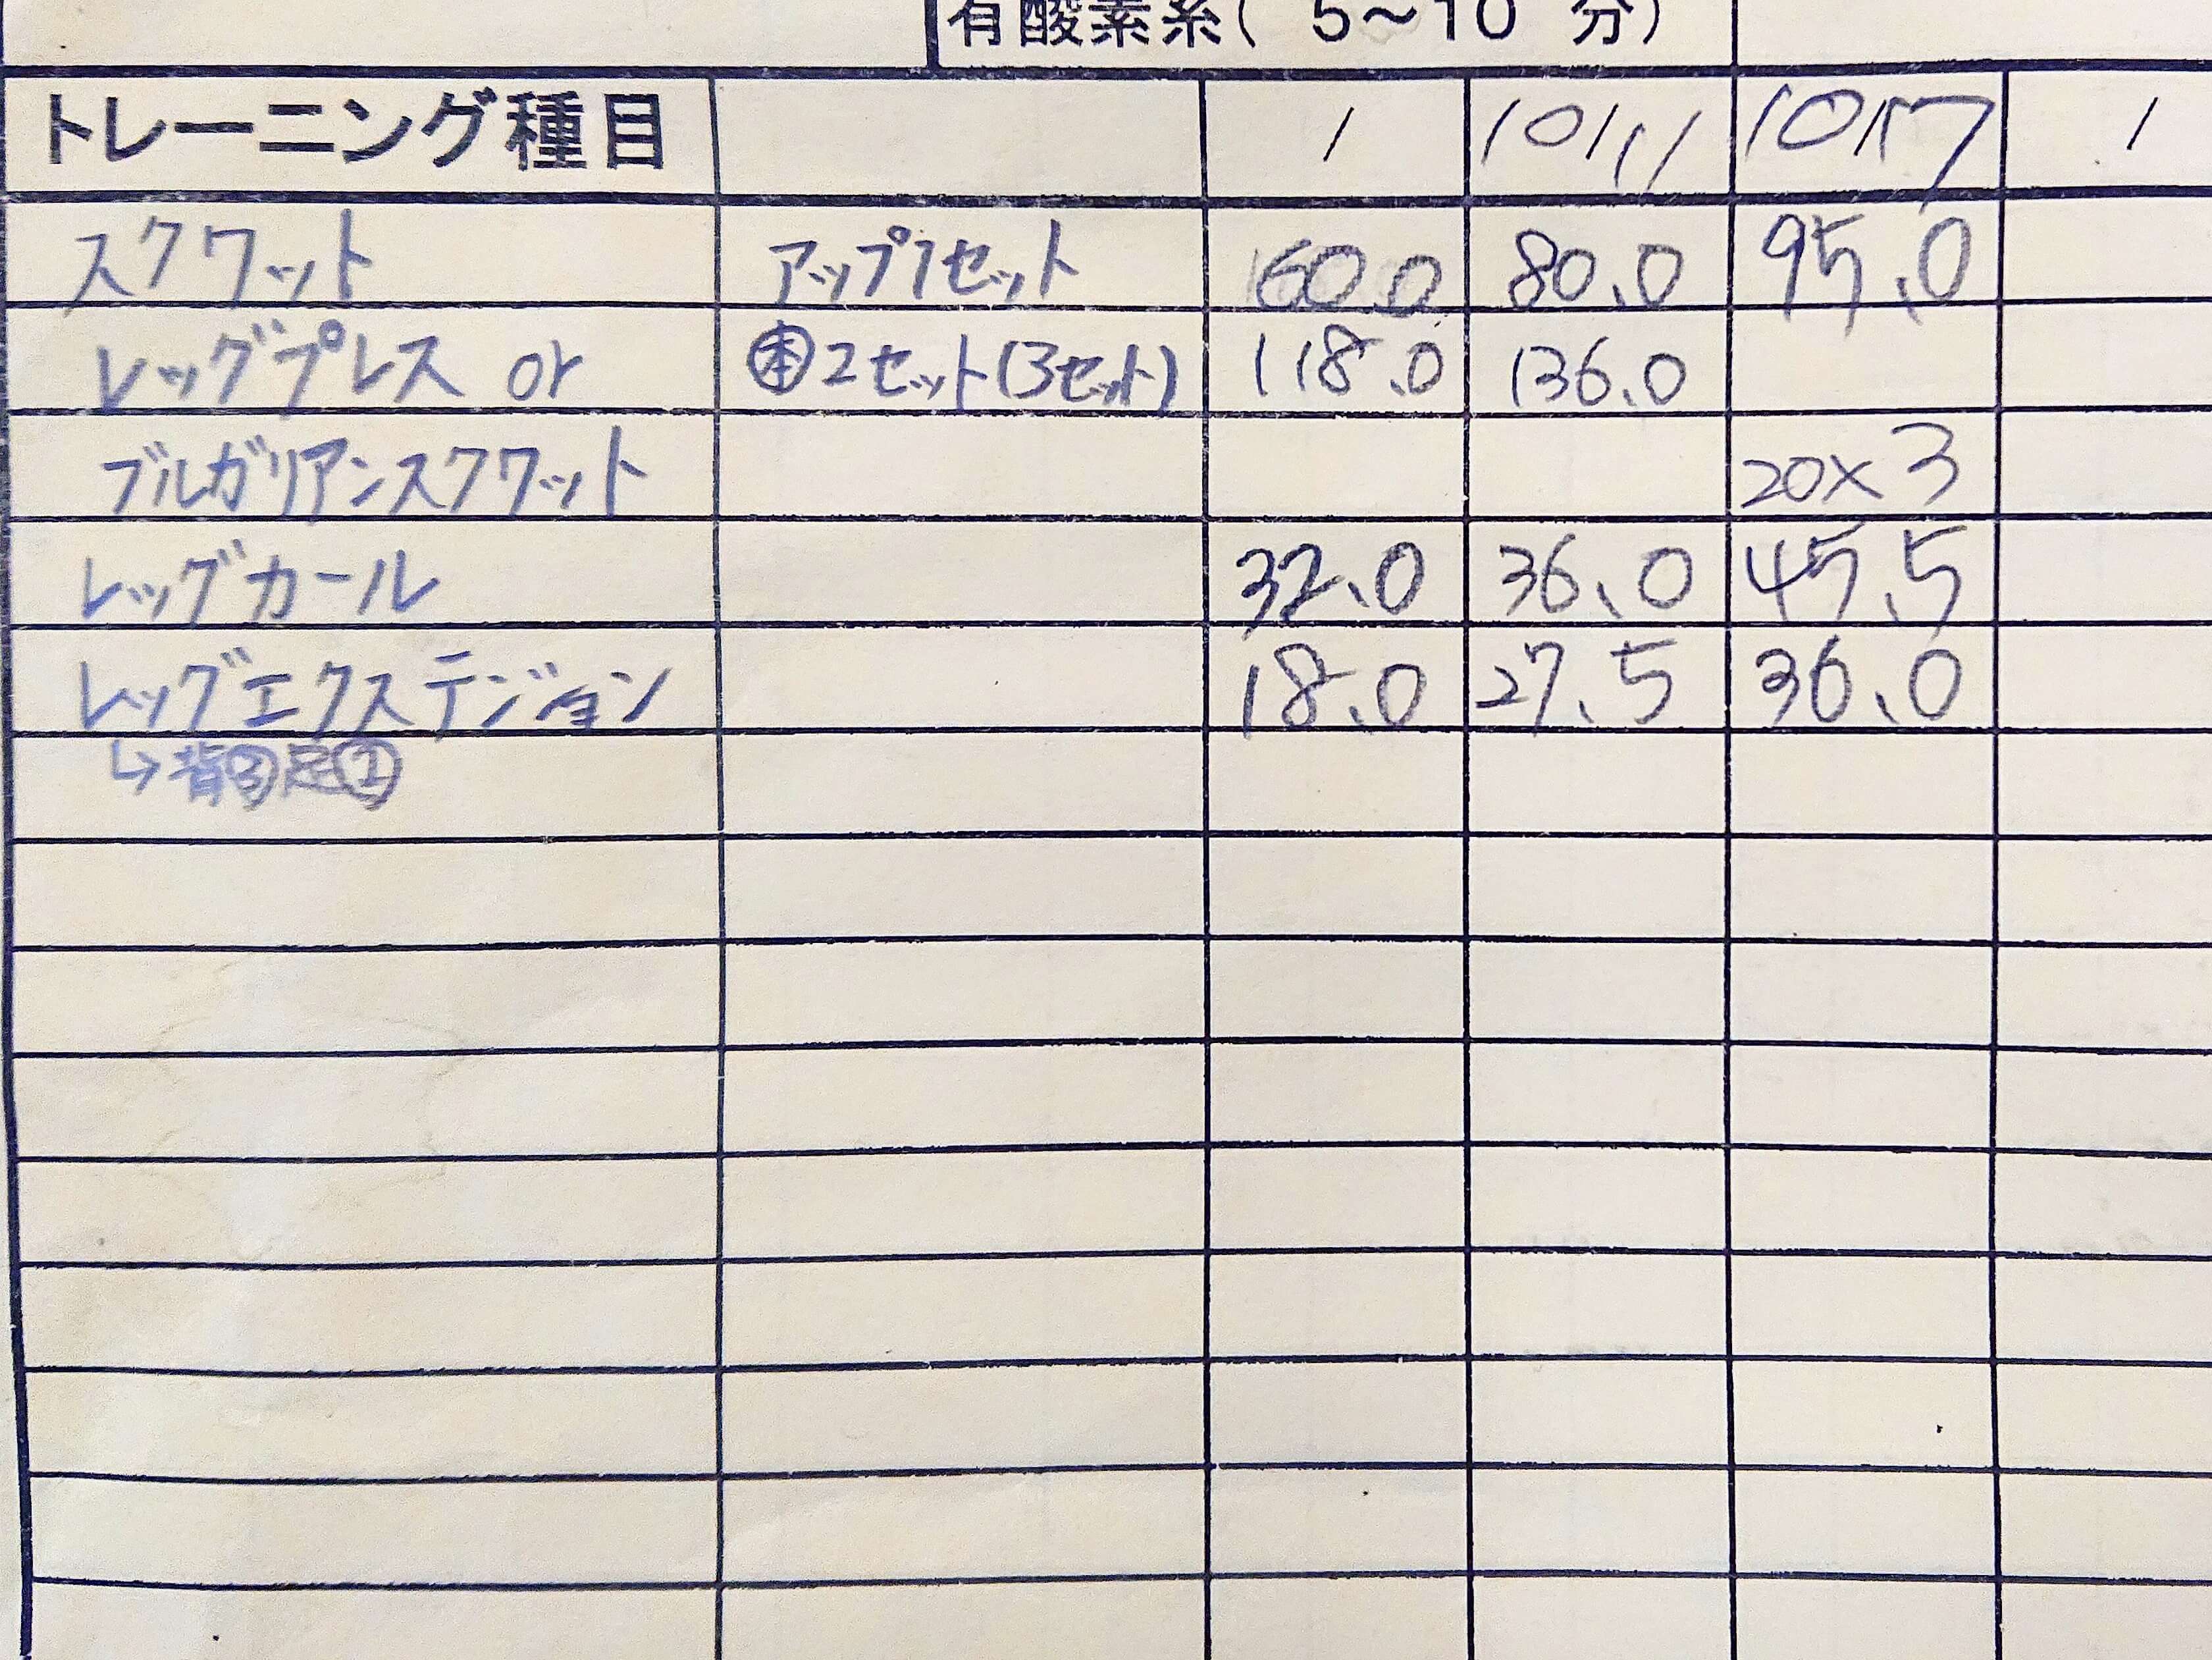 有酸素系( 5~10 分)
トレーニング種目 / 10/11 10/17 /
スクワット アップ1セット 60.0 80.0 95.0
レッグプレス or ㊍2セット(3セット) 118.0 136.0
ブルガリアンスクワット 20×3
レッグカール 32.0 36.0 45.5
レッグエクステンジョン 18.0 27.5 36.0
↳背③足②